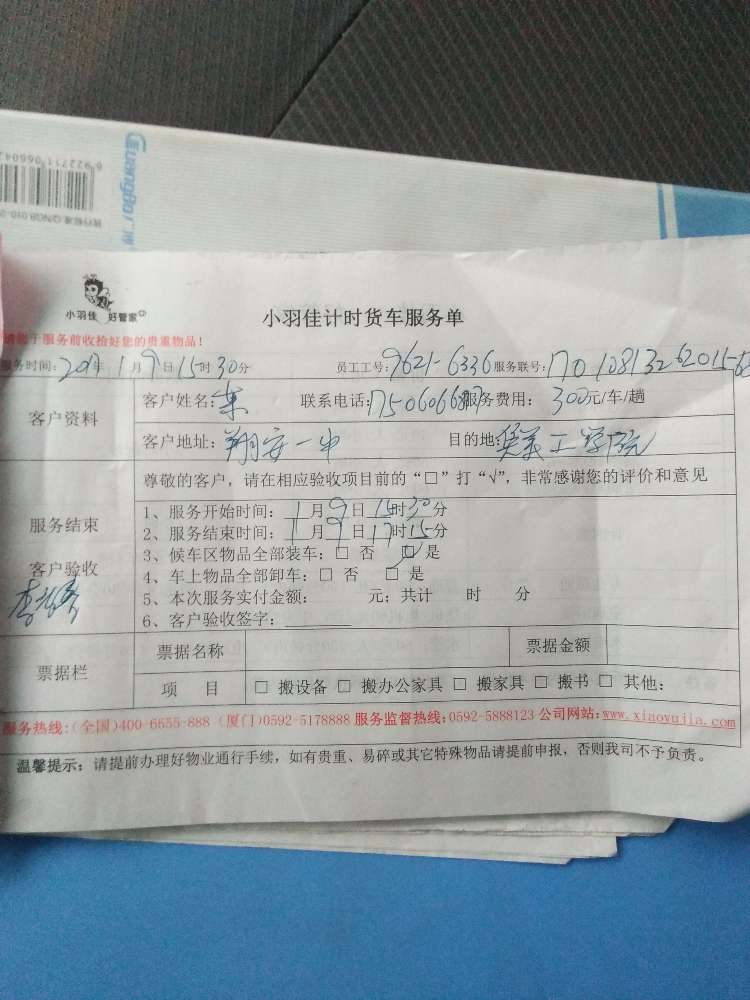 6922711066042
执行标准:Q/NGB 010-2
GuangBo 博
小羽佳 好管家
小羽佳计时货车服务单
请您于服务前收拾好您的贵重物品!
服务时间: 2017年 1月9日15时30分 员工工号:9621-6336 服务联号:
客户资料
客户姓名: 联系电话: 服务费用: 300元/车/趟
客户地址: 翔安一中 目的地: 集美工学院
尊敬的客户,请在相应验收项目前的“□”打“√”,非常感谢您的评价和意见
服务结束
客户验收
1、服务开始时间: 1月9日15时30分
2、服务结束时间: 1月9日17时15分
3、候车区物品全部装车:□ 否 ☑ 是
4、车上物品全部卸车:□ 否 □ 是
5、本次服务实付金额: 元;共计 时 分
6、客户验收签字:
票据栏
票据名称 票据金额
项 目 □ 搬设备 □ 搬办公家具 □ 搬家具 □ 搬书 □ 其他:
服务热线:(全国)400-6655-888 (厦门)0592-5178888 服务监督热线:0592-5888123 公司网站:www.xiaoyujia.com
温馨提示:请提前办理好物业通行手续,如有贵重、易碎或其它特殊物品请提前申报,否则我司不予负责。